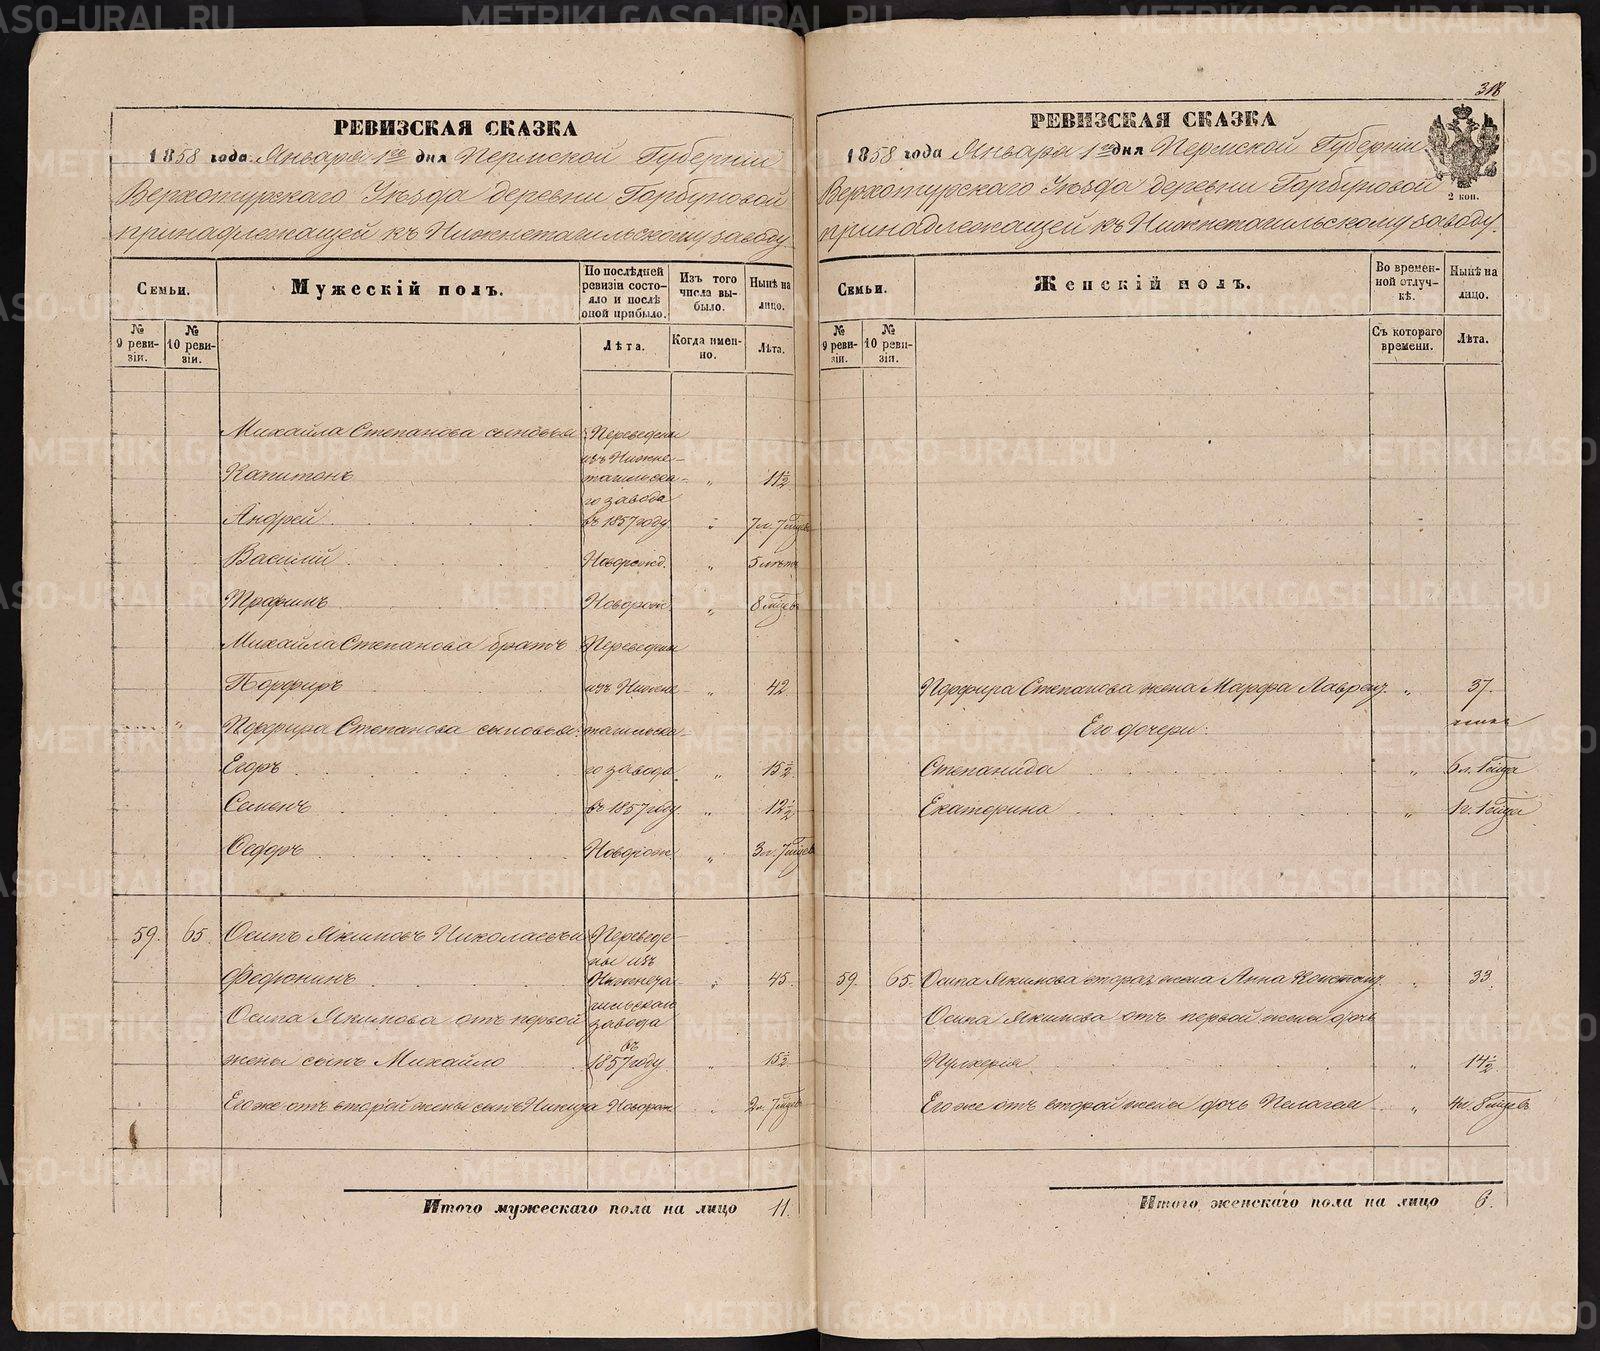 318
РЕВИЗСКАЯ СКАЗКА
1858 года Января 1го дня Пермской Губерніи
Верхотурскаго Уѣзда деревни Горбуновой
принадлежащей къ Нижнетагильскому заводу.
Семьи.
Мужескій полъ.
По послѣдней ревизіи состояло и послѣ оной прибыло.
Изъ того числа выбыло.
Нынѣ на лицо.
№ 9 ревизіи.
№ 10 ревизіи.
Лѣта.
Когда именно.
Лѣта.
Михайла Степанова сыновья Переведены
изъ Нижне-
Капитонъ тагильска- " 11½
го завода
Андрей въ 1857 году " 7 л. 7 мцевъ
Василий Новорожд. " 5 лѣтъ
Трофимъ Новорож " 8 мцевъ
Михайла Степанова братъ Переведены
Порфиръ изъ Нижне- " 42
Порфира Степанова сыновья: тагильска-
Егоръ го завода " 15½
Семенъ въ 1857 году " 12½
Ѳедоръ Новорож " 3 л. 7 мцев
59. 65. Осипъ Якимовъ Николаевъ и Переведе-
ны изъ
Федюнинъ Нижнета- " 45
гильскаго
Осипа Якимова отъ первой завода
въ
жены сынъ Михайло 1857 году " 15½
Его же отъ второй жены сынъ Никита Новорож " 2 л. 7 мцевъ
Итого мужескаго пола на лицо 11.
РЕВИЗСКАЯ СКАЗКА
1858 года Января 1го дня Пермской Губерніи
Верхотурскаго Уѣзда деревни Горбуновой
принадлежащей къ Нижнетагильскому заводу.
2 коп.
Семьи.
Женскій полъ.
Во временной отлучкѣ.
Нынѣ на лицо.
№ 9 ревизіи.
№ 10 ревизіи.
Съ котораго времени.
Лѣта.
Порфира Степанова жена Марфа Лаврен. " 37.
Его дочери:
Степанида " 6 л. 1 мца
Екатерина " 1 г. 1 мца
59. 65. Осипа Якимова вторая жена Анна Констан. " 33
Осипа Якимова отъ первой жены дочь
Пулхерия " 14½
Его же отъ второй жены дочь Пелагея " 4 л. 8 мцевъ
Итого женскаго пола на лицо 6.
METRIKI.GASO-URAL.RU